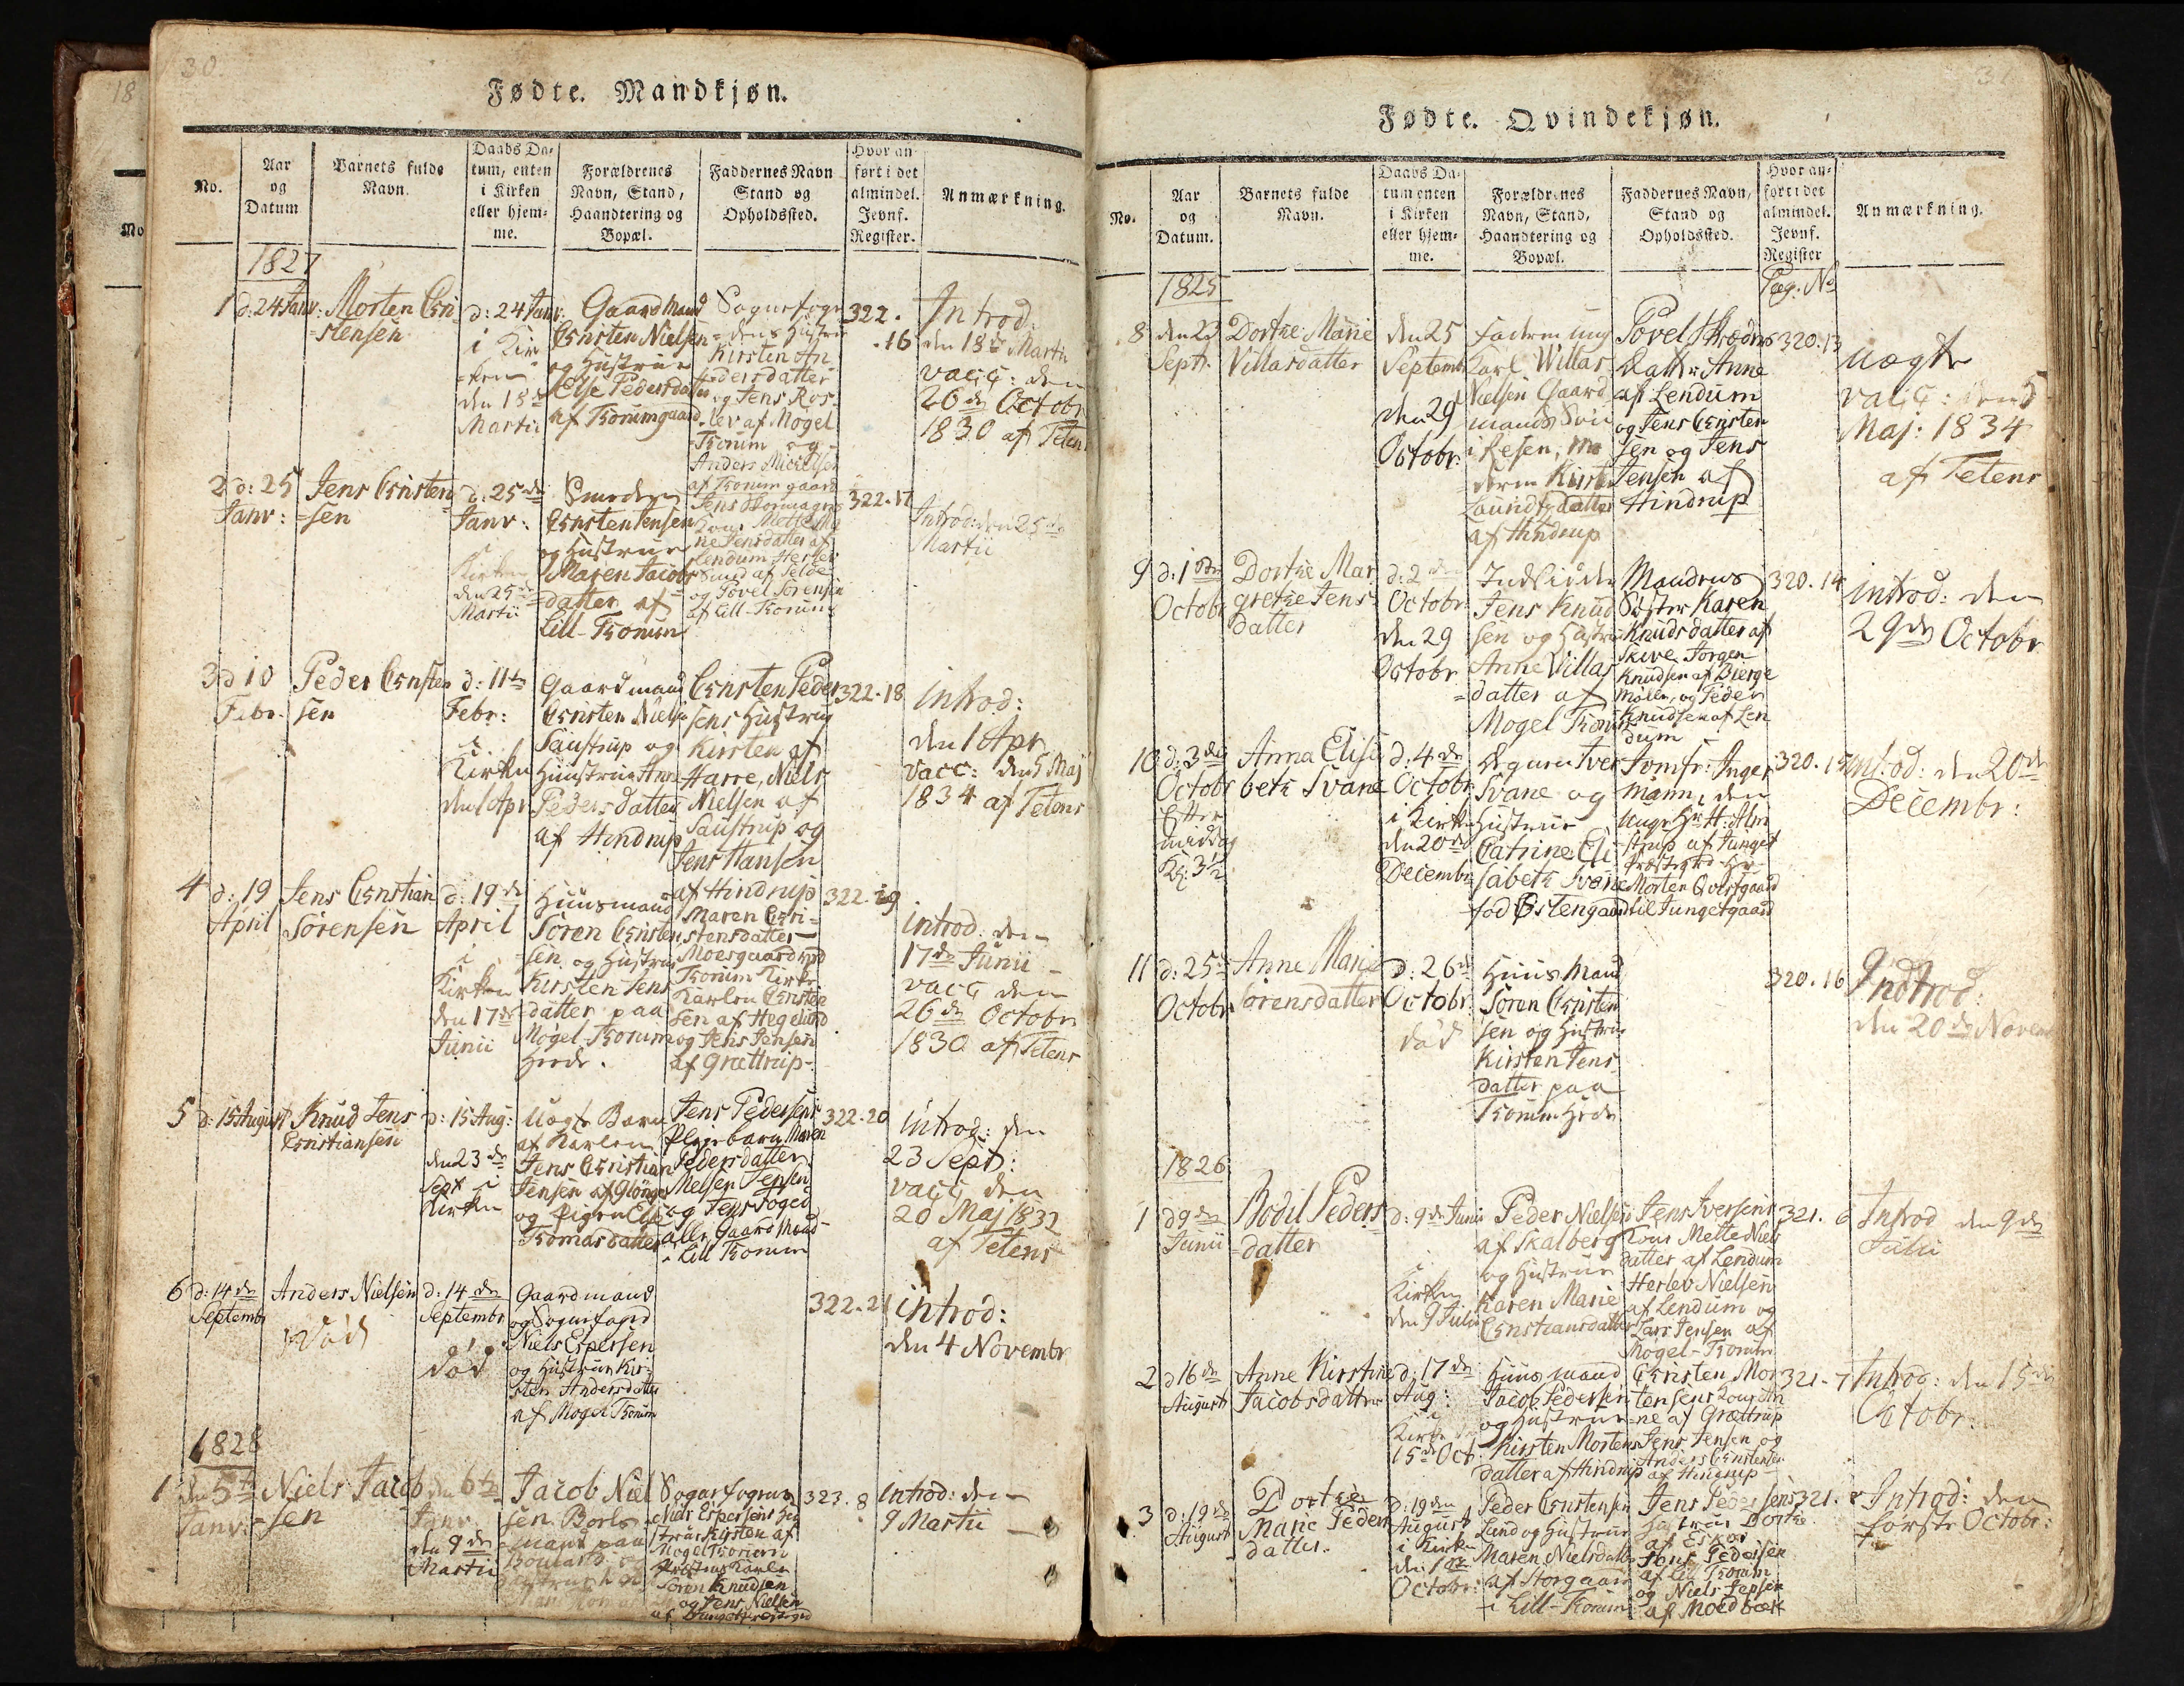 30.
Fødte. Mandkjøn.
No.
Aar
og
Datum
Barnets fulde
Navn.
Daabs Da-
tum, enten
i Kirken
eller hjem-
me.
Forældrenes
Navn, Stand,
Haandtering og
Bopæl.
Faddernes Navn
Stand og
Opholdssted.
Hvor an
ført i det
almindel.
Jevnf.
Register.
Anmærkning.
1827
1
d: 24 Janv:
Morten Chri
=stensen
d: 24 Janv:
i Kir
=ken
den 18de
Martii
Gaardmand
Christen Nielsen
og Hustrue
Else Pedersdatter
af Thorumgaard
Sognefoge
=dens Hustru
Kirsten An
=dersdatter
og Jens Ros
=lev af Mogel
Thorum og
Anders Michelsen
af Thorumgaard
322.
.16
Introd:
den 18de Martii
vacc: den
26de Octobr
1830 af Teten
2
d: 25
Janv:
Jens Christen
=sen
d: 25de
Janv:
Kirken
den 25de
Martii
Smeden
Christen Jensen
og Hustrue
Maren Jacobs
=datter af
Lill-Thorum
Jens
Kone Mette Ma
ne Jensdatter af
Lendum Herlev
Smed af Selde
og Povel Sørensen
af Lill-Thorum
322.17
Introd: den 25de
Martii
3
d 10
Febr.
Peder Christen
sen
d: 11te
Febr:
i
Kirken
den 1 Apr
Gaardmand
Christen Nielsen
Saustrup og
Huustrue Ann
Pedersdatter
af Hindrup
Christen Peder
sens Hustrue
Kirsten af
Harre, Niels
Nielsen af
Saustrup og
Jens Hansen
af Hindrup
322.18
introd:
den 1 Apr
vacc: den 5 Maj
1834 af Tetens
4
d: 19
April
Jens Christian
Sørensen
d: 19de
April
i
Kirken
den 17de
Junii
Huusmand
Søren Christen
sen og Hustrue
Kirsten Jens
datter paa
Møgel-Thorum
Hede.
Maren Chri=
stensdatter
Moesgaard ved
Thorum Kirke
Karlen Christen
sen af Hegelund
og Jens Jensen
af Grættrup
322.19
introd: den
17de Junii
vacc den
26de Octobr
1830 af Tetens
5
d: 15 August
Knud Jens
Christiansen
d: 15 Aug:
den 23de
Sept i
Kirken
Uægte Barn
af Karlen
Jens Christian
Jensen af Glønge
og Pigen Else
Thomasdatter
Jens Pedersens
Plejebarn Maren
Pedersdatter
Nielsen Jepsen
og Jens Foged
alle Gaardmænd
i Lill Thorum
322.20
introd: den
23 Sept:
vacc den
20 Maj 1832
af Tetens
6
d: 14de
Septembr
Anders Nielsen
død
d: 14de
Septembr
død
Gaardmand
og Sognefoged
Niels Espersen
og Hustrue Kir
sten Andersdatter
af Møgel Thorum
322.21
introd:
den 4 Novembr
1828
1
den 5te
Janv:
Niels Jacob
=sen
den 6te
Janv.
den 9de
Martii
Jacob Niel
sen Bøels
=mand paa
Sognefogdens
Niels Espersens Hu
strue Kirsten af
Møgel Thorum
Præstens Karle
Søren Knudsen
og Jens Nielsen
af Junget Præstegrd
323.8
introd: den
9 Martii
31
Fødte. Qvindekjøn.
No.
Aar
og
Datum.
Barnets fulde
Navn.
Daabs Da-
tum enten
i Kirken
eller hjem-
me.
Forældrenes
Navn, Stand,
Haandtering og
Bopæl.
Faddernes Navn,
Stand og
Opholdssted.
Hvor an-
ført i det
almindel.
Jevnf.
Register
Anmærkning.
Pag. No
1825
8
den 23
Septr.
Dorthe Marie
Villasdatter
den 25
Septembr
den 29
Octobr:
Faderen ung
Karl Willas
Nielsen Gaard
mands Søn
i Resen, Mo
deren Kirsten
Laurids datter
af Hindrup
Povel Skræders
Datter Anne
af Lendum
og Jens Christen
sen og Jens
Jensen af
Hindrup
320.13
uægte
vacc: den 5
Maj: 1834
af Tetens
9
d: 1ste
Octobr
Dorthe Mar
grethe Jens
datter
d: 2den
Octobr:
den 29
Octobr
Indsidder
Jens Knud
sen og Hustru
Anne Villas
=datter af
Mogel Thorum
Mandens
Søster Karen
Knudsdatter af
Skive Jørgen
Knudsen af Bierge
Mølle, og Peder
Knudsen af Len
dum
320.14
introd: den
29de Octobr
10
d: 3de
Octobr
Efter
middag
Kl: 3½
Anna Elisa
beth Svane
d: 4de
Octobr
i Kirken
den 20de
Decembr
Degnen Iver
Svane og
Hustrue
Catrine Eli
sabeth Svane
fød Østengaard
Jomfr: Inger
Mann, den
unge Hr H. Alm
strup af Junget
Præstegrd Hr
Morten Qvistgaard
til Jungetgaard
320.15
Introd: den 20de
Decembr:
11
d: 25de
Octobr
Anne Marie
Sørensdatter
d: 26de
Octobr:
død
Huusmand
Søren Christen
sen og Hustrue
Kirsten Jens
datter paa
Thorum Hede
320.16
Indtrod:
den 20de Novem
1826
1
d 9de
Junii
Bodil Peders
=datter
d: 9de Junii
i
Kirken
den 9 Julii
Peder Nielsen
af Skalberg
og Hustrue
Karen Marie
Christiansdatter
Jens Iversens
Kone Mette Niels
datter af Lendum
Herlev Nielsen
af Lendum og
Lars Jensen af
Mogel-Thorum
321. 6
Introd den 9de
Julii
2
d 16de
August
Anne Kirstine
Jacobsdatter
d: 17de
Aug:
i
Kirke
15de Oct
Huusmand
Jacob Pedersen
og Hustrue
Kirsten Mortens
datter af Hindrup
Christen Mor
tensens Kone An
=ne af Grættrup
Jens Jensen og
Anders Christensen
af Hindrup
321.7
Introd: den 15de
Octobr:
3
d: 19de
August
Dorthe
Marie Peders
datter.
d: 19den
August
i Kirken
den 1ste
Octobr:
Peder Christensen
Lund og Hustrue
Maren Nielsdatter
af Storgaard
i Lill-Thorum
Jens Pedersens
Hustrue Dorthe
af Eskov
Jens Pedersen
af Lill Thorum
og Niels Jepsen
af Moedbæk
321. 8
Introd: den
første Octobr: